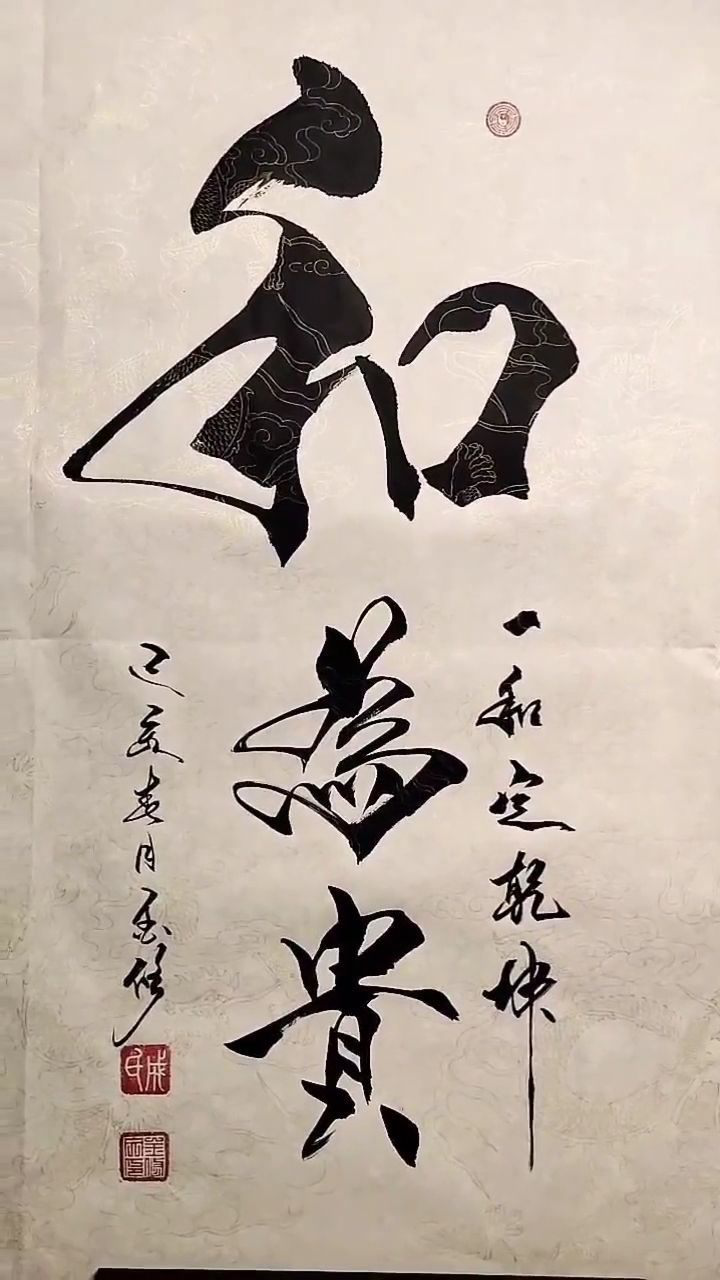 和為貴
一和定乾坤
己亥春月